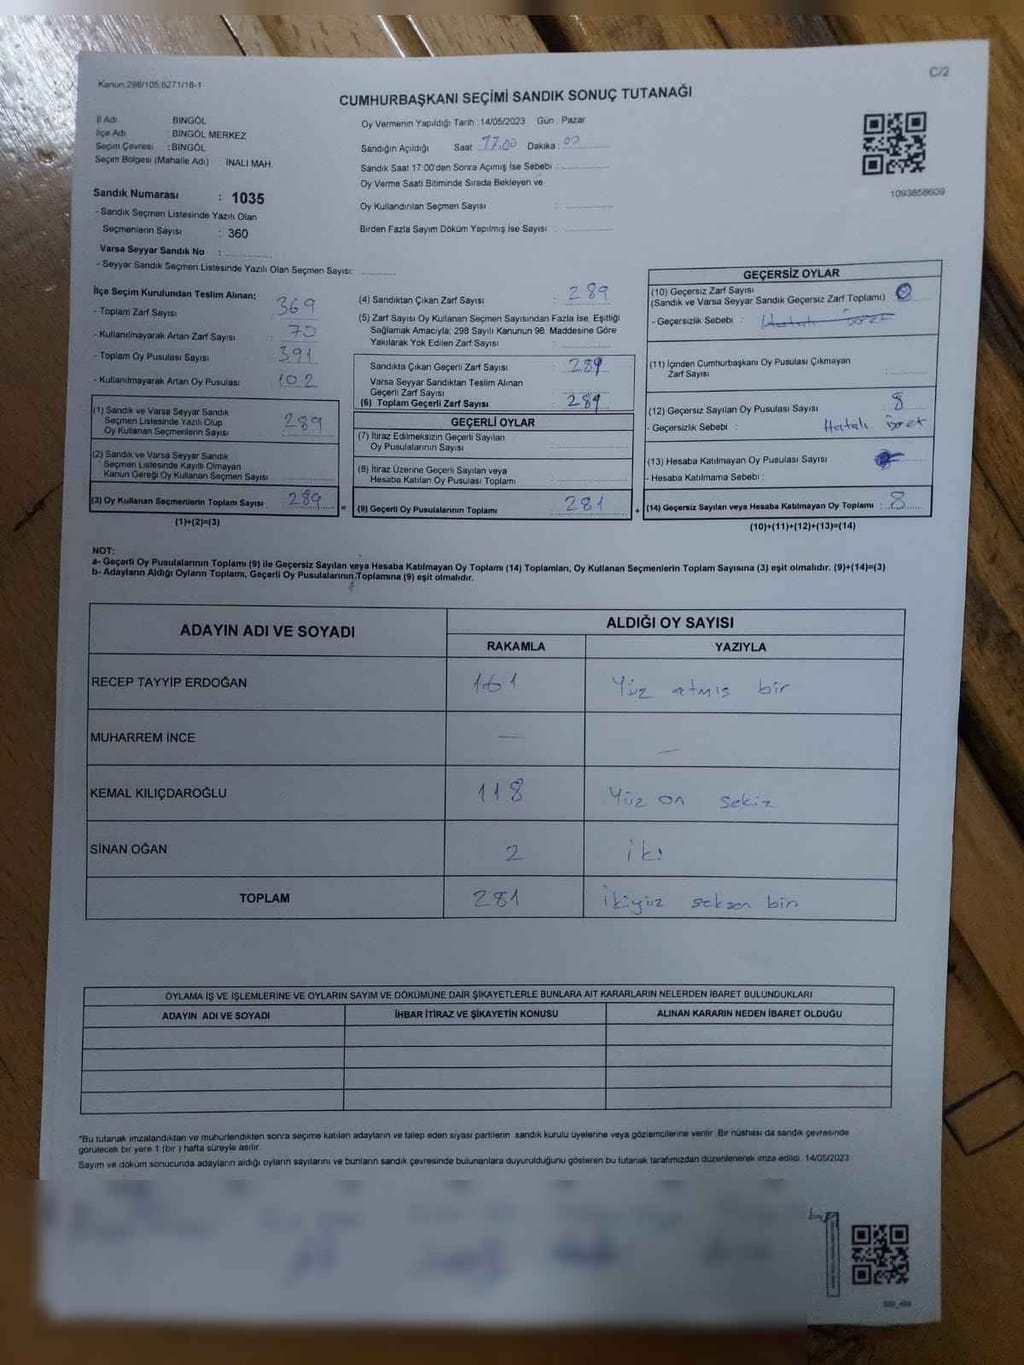 Kanun:298/105,6271/18-1
C/2
CUMHURBAŞKANI SEÇİMİ SANDIK SONUÇ TUTANAĞI
İl Adı BİNGÖL
İlçe Adı : BİNGÖL MERKEZ
Seçim Çevresi : BİNGÖL
Seçim Bölgesi (Mahalle Adı) İNALI MAH.
Oy Vermenin Yapıldığı Tarih : 14/05/2023 Gün : Pazar
Sandığın Açıldığı Saat : 17.00 Dakika : 00
Sandık Saat 17:00'den Sonra Açımış İse Sebebi :
Oy Verme Saati Bitiminde Sırada Bekleyen ve
Oy Kullandırılan Seçmen Sayısı :
Birden Fazla Sayım Döküm Yapılmış İse Sayısı :
1093858609
Sandık Numarası : 1035
- Sandık Seçmen Listesinde Yazılı Olan
Seçmenlerin Sayısı : 360
Varsa Seyyar Sandık No :
- Seyyar Sandık Seçmen Listesinde Yazılı Olan Seçmen Sayısı:
İlçe Seçim Kurulundan Teslim Alınan;
- Toplam Zarf Sayısı : 369
- Kullanılmayarak Artan Zarf Sayısı : 70
- Toplam Oy Pusulası Sayısı : 391
- Kullanılmayarak Artan Oy Pusulası : 102
(1) Sandık ve Varsa Seyyar Sandık
Seçmen Listesinde Yazılı Olup
Oy Kullanan Seçmenlerin Sayısı : 289
(2) Sandık ve Varsa Seyyar Sandık
Seçmen Listesinde Kayıtlı Olmayan
Kanun Gereği Oy Kullanan Seçmen Sayısı :
(3) Oy Kullanan Seçmenlerin Toplam Sayısı : 289
(1)+(2)=(3)
(4) Sandıktan Çıkan Zarf Sayısı : 289
(5) Zarf Sayısı Oy Kullanan Seçmen Sayısından Fazla İse, Eşitliği
Sağlamak Amacıyla; 298 Sayılı Kanunun 98. Maddesine Göre
Yakılarak Yok Edilen Zarf Sayısı :
Sandıkta Çıkan Geçerli Zarf Sayısı : 289
Varsa Seyyar Sandıktan Teslim Alınan
Geçerli Zarf Sayısı :
(6) Toplam Geçerli Zarf Sayısı : 289
GEÇERLİ OYLAR
(7) İtiraz Edilmeksizin Geçerli Sayılan
Oy Pusulalarının Sayısı :
(8) İtiraz Üzerine Geçerli Sayılan veya
Hesaba Katılan Oy Pusulası Toplamı :
= (9) Geçerli Oy Pusulalarının Toplamı : 281 +
GEÇERSİZ OYLAR
(10) Geçersiz Zarf Sayısı
(Sandık ve Varsa Seyyar Sandık Geçersiz Zarf Toplamı) :
- Geçersizlik Sebebi : Hatalı İşaret
(11) İçinden Cumhurbaşkanı Oy Pusulası Çıkmayan
Zarf Sayısı :
(12) Geçersiz Sayılan Oy Pusulası Sayısı : 8
- Geçersizlik Sebebi : Hatalı İşaret
(13) Hesaba Katılmayan Oy Pusulası Sayısı :
- Hesaba Katılmama Sebebi :
(14) Geçersiz Sayılan veya Hesaba Katılmayan Oy Toplamı : 8
(10)+(11)+(12)+(13)=(14)
NOT:
a- Geçerli Oy Pusulalarının Toplamı (9) ile Geçersiz Sayılan veya Hesaba Katılmayan Oy Toplamı (14) Toplamları, Oy Kullanan Seçmenlerin Toplam Sayısına (3) eşit olmalıdır. (9)+(14)=(3)
b- Adayların Aldığı Oyların Toplamı, Geçerli Oy Pusulalarının Toplamına (9) eşit olmalıdır.
ADAYIN ADI VE SOYADI ALDIĞI OY SAYISI
RAKAMLA YAZIYLA
RECEP TAYYİP ERDOĞAN 161 Yüz atmış bir
MUHARREM İNCE — —
KEMAL KILIÇDAROĞLU 118 Yüz on sekiz
SİNAN OĞAN 2 iki
TOPLAM 281 ikiyüz seksen bir
OYLAMA İŞ VE İŞLEMLERİNE VE OYLARIN SAYIM VE DÖKÜMÜNE DAİR ŞİKAYETLERLE BUNLARA AİT KARARLARIN NELERDEN İBARET BULUNDUKLARI
ADAYIN ADI VE SOYADI İHBAR İTİRAZ VE ŞİKAYETİN KONUSU ALINAN KARARIN NEDEN İBARET OLDUĞU
*Bu tutanak imzalandıktan ve mühürlendikten sonra seçime katılan adayların ve talep eden siyasi partilerin sandık kurulu üyelerine veya gözlemcilerine verilir. Bir nüshası da sandık çevresinde
görülecek bir yere 1 (bir) hafta süreyle asılır.
Sayım ve döküm sonucunda adayların aldığı oyların sayılarını ve bunların sandık çevresinde bulunanlara duyurulduğunu gösteren bu tutanak tarafımızdan düzenlenerek imza edildi. 14/05/2023